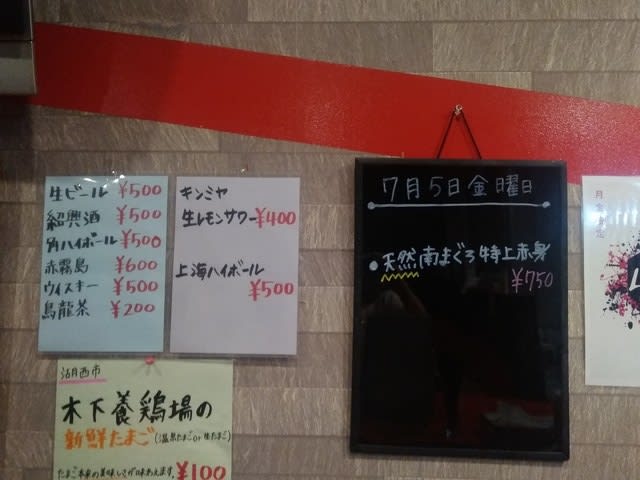 生ビール ¥500
紹興酒 ¥500
角ハイボール ¥500
赤霧島 ¥600
ウイスキー ¥500
烏龍茶 ¥200
キンミヤ
生レモンサワー ¥400
上海ハイボール
¥500
7月5日金曜日
●天然南まぐろ特上赤身
¥750
湖西市
木下養鶏場の
新鮮たまご(温泉たまごor 生たまご)
たまご本来の美味しさが味わえます。¥100